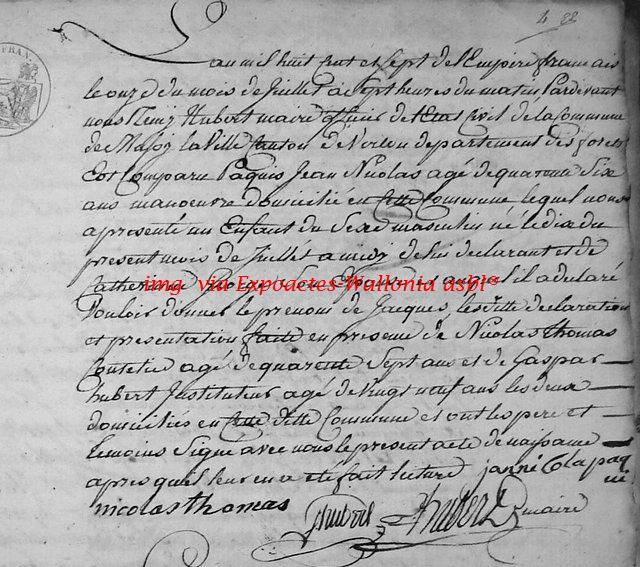 4 22
FRAN
Lan mil huit cent et sept de l'Empire francais
le onze du mois de juillet a sept heures du matin Pardevant
nous Remy Hubert maire officier de l'Etat civil de la Commune
de la Ville Canton de Virton departement des forets
Est Comparu Paquis Jean Nicolas agé de quarante Six
ans manoeuvre domicilié en cette Commune lequel nous
a presenté un Enfant du Sexe masculin né le dix du
present mois de Juillet a midi de lui declarant et de
Catherine Son Epouse et auquel il a declaré
img via Expoactes-Wallonia asbl
Vouloir donner le prenom de Jacques, les ditte declaration
et presentation faite en presence de Nicolas thomas
agé de quarente Sept ans et de Gaspar
hubert Instituteur agé de vingt neuf ans les deux
domiciliés en cette ditte Commune et ont les pere et
temoins Signé avec nous le present acte de naissance
apres qu'il leur en a eté fait lecture
nicolas thomas hubert Hubert maire